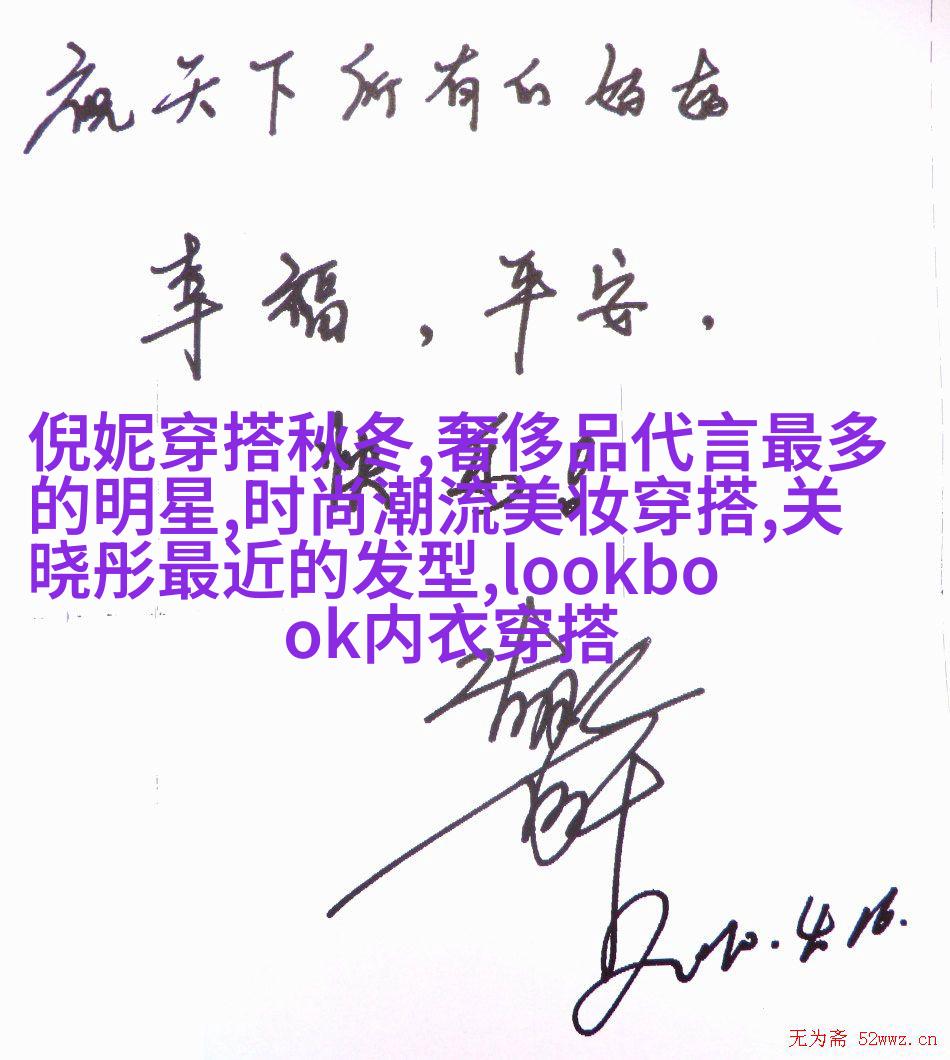 祝天下所有的妈妈
幸福，平安，
倪妮穿搭秋冬,奢侈品代言最多
的明星,时尚潮流美妆穿搭,关
晓彤最近的发型,lookbo
ok内衣穿搭
快乐！
2010.4.16.
无为斋 52wwz.cn